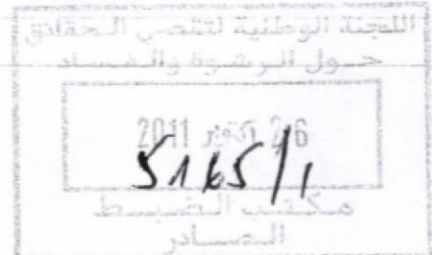 اللجنة الوطنية لتقصي الحقائق
حول الرشوة والفساد
26 أكتوبر 2011
5165/1
مكتب الضبط
الصادر